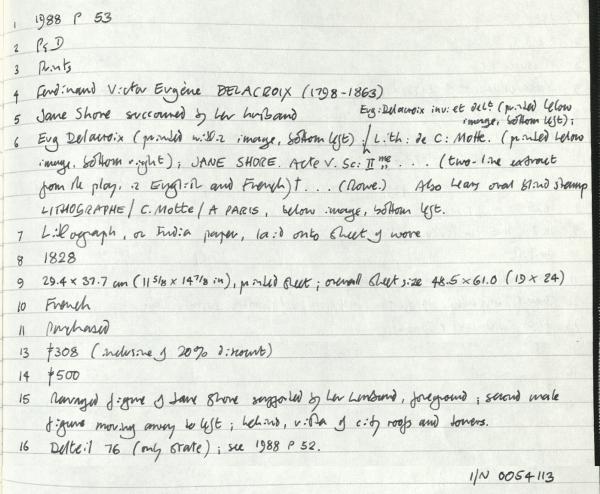 1 1988 P 53
2 P&D
3 Prints
4 Ferdinand Victor Eugène DELACROIX (1798-1863)
5 Jane Shore succoured by her husband
Eug: Delacroix inv: et delt (printed below image, bottom left);
6 Eug Delacroix (printed within image, bottom left) / Lith: de C: Motte. (printed below
image, bottom right); JANE SHORE. Acte V. Sc: IIme ... (two-line extract
from the play, in English and French)† ... (Rowe.) Also bears oval blind stamp
LITHOGRAPHE / C. Motte / A PARIS, below image, bottom left.
7 Lithograph, on India paper, laid onto sheet of wove
8 1828
9 29.4 x 37.7 cm (11 5/8 x 14 7/8 in), printed sheet; overall sheet size 48.5 x 61.0 (19 x 24)
10 French
11 Purchased
13 £308 (inclusive of 20% discount)
14 £500
15 Ravaged figure of Jane Shore supported by her husband, foreground; second male
figure moving away to left; behind, vista of city roofs and towers.
16 Delteil 76 (only state); see 1988 P 52.
I/N 0054113